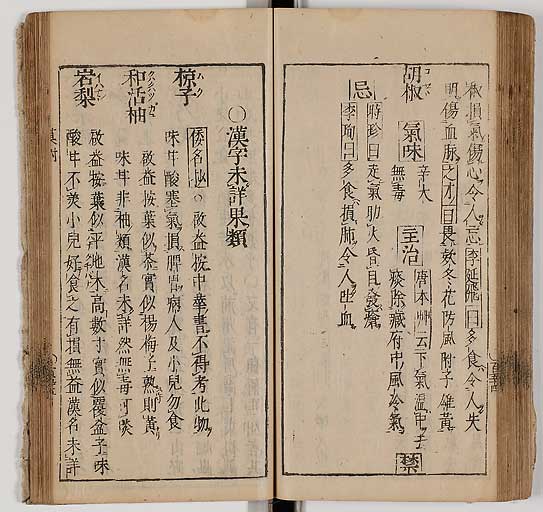 椒損氣傷心令人忘李廷飛曰多食令人失
明傷血脉之才曰畏欸冬花防風附子雄黃
胡椒
氣味 辛大
無毒
主治 唐本艸云下氣溫中去
痰除藏府中風冷氣
禁
忌 時珍曰走氣助火昏目發瘡
李珣曰多食損肺令人吐血
〇漢字未詳果類
椋子
倭名 啟益按中華書不得考此物
味甘酸澁氣損脾胃病人及小兒勿食
和活柚
啟益按葉似茶實似楊梅子熟則黃
味甘非柚類漢名未詳然無毒可啖
岩梨
啟益按葉似平地木高數寸實似覆盆子味
酸甘不美小兒好食之有損無益漢名未詳